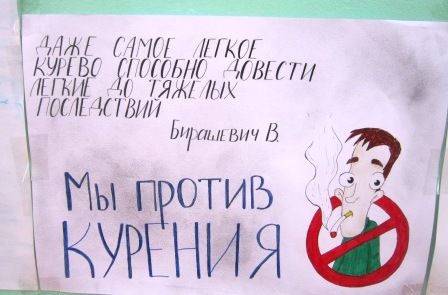 ДАЖЕ САМОЕ ЛЕГКОЕ
КУРЕВО СПОСОБНО ДОВЕСТИ
ЛЕГКИЕ ДО ТЯЖЕЛЫХ
ПОСЛЕДСТВИЙ
Бирашевич В.
МЫ ПРОТИВ
КУРЕНИЯ